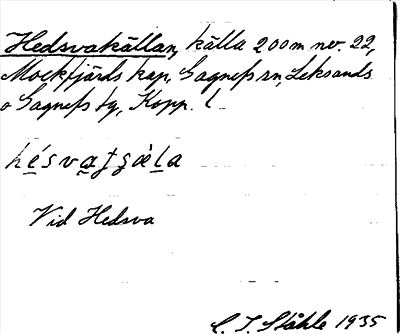 Hedsvakällan, källa 200m nv. 22,
Mockfjärds kap, Gagnefs sn, Leksands
o Gagnefs tg, Kopp. l
hésvatsàla
Vid Hedsva
C. I. Ståhle 1935